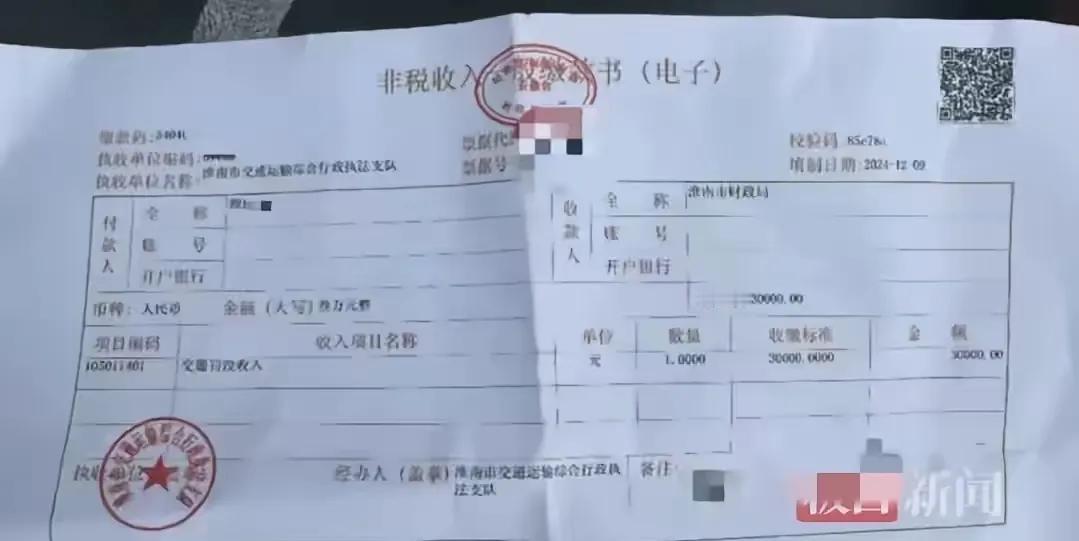 非税收入 书（电子）
缴款码:3404
校验码:85c78a
执收单位编码:
票据代
填制日期:2024-12-09
执收单位名称:淮南市交通运输综合行政执法支队
票据号
付款人
全 称
账 号
开户银行
收款人
全 称 淮南市财政局
账 号
开户银行
币种: 人民币 金额（大写）叁万元整 30000.00
项目编码 收入项目名称 单位 数量 收缴标准 金 额
105011401 交通罚没收入 元 1.0000 30000.0000 30000.00
执收单位
经办人（盖章）淮南市交通运输综合行政执法支队
备注:
新闻